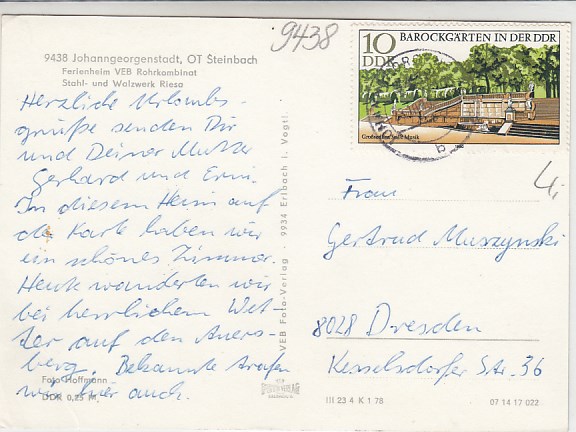 9438 Johanngeorgenstadt, OT Steinbach
Ferienheim VEB Rohrkombinat
Stahl- und Walzwerk Riesa
Herzliche Urlaubs-
grüße senden Dir
und Deiner Mutter
Gerhard und Erni.
In diesem Heim auf
der Karte haben wir
ein schönes Zimmer.
Heute wanderten wir
bei herrlichem Wet-
ter auf den Auers-
berg. Bekannte trafen
wir hier auch.
Foto Hoffmann
DDR 0,25 M
VEB Foto-Verlag · 9934 Erlbach i. Vogtl.
9438
10
DDR
BAROCKGÄRTEN IN DER DDR
b
4
Frau
Gertrud Muszynski
8028 Dresden
Kesselsdorfer Str. 36
III 23 4 K 1 78
07 14 17 022